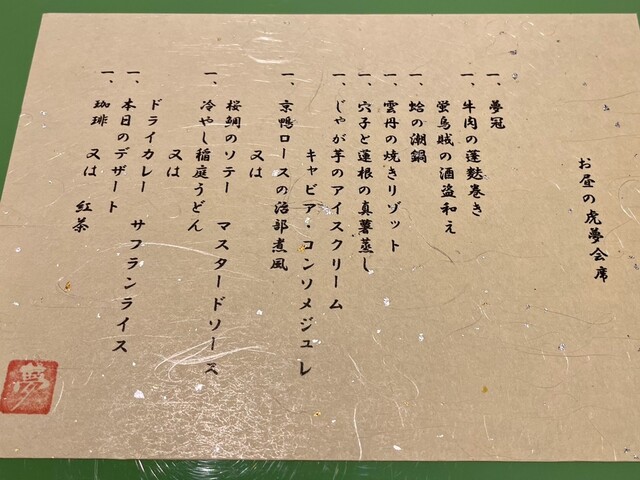 お昼の虎夢会席
一、夢冠
一、牛肉の蓬麩巻き
蛍烏賊の酒盗和え
一、蛤の潮鍋
一、雲丹の焼きリゾット
一、穴子と蓮根の真薯蒸し
一、じゃが芋のアイスクリーム
キャビア・コンソメジュレ
一、京鴨ロースの治部煮風
又は
桜鯛のソテー マスタードソース
一、冷やし稲庭うどん
又は
ドライカレー サフランライス
一、本日のデザート
一、珈琲 又は 紅茶
夢